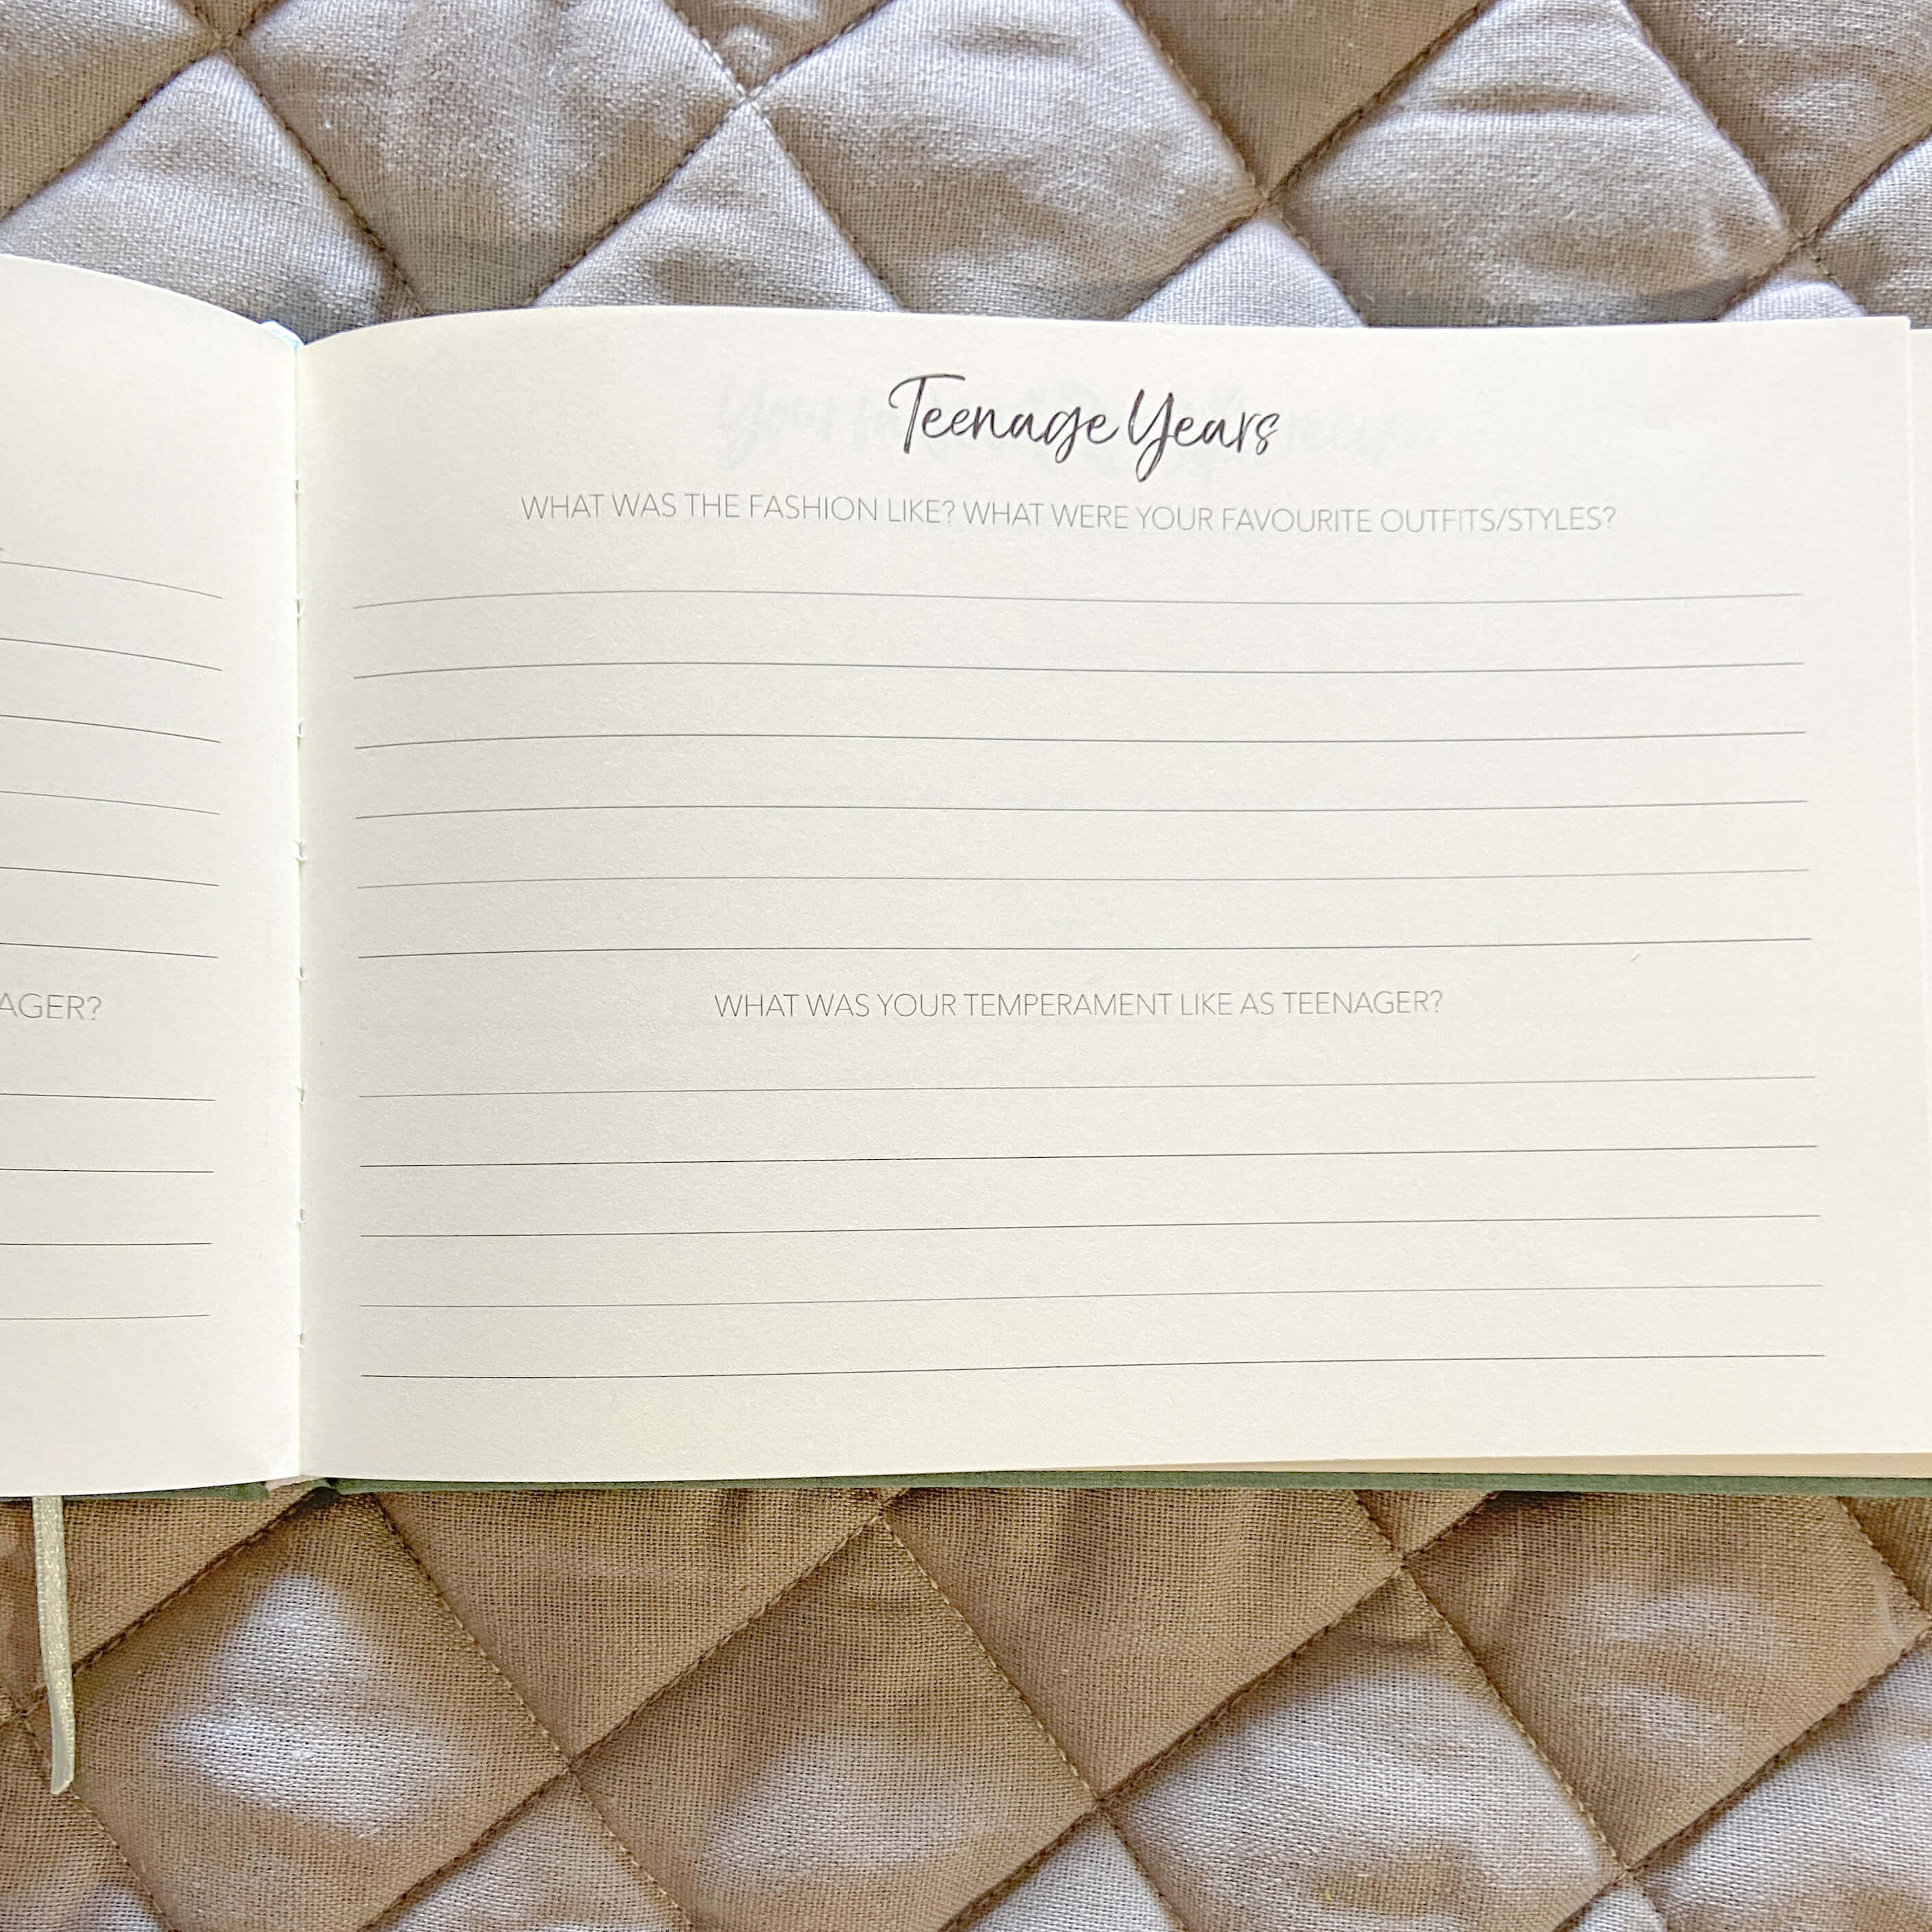 AGER?
Teenage Years
WHAT WAS THE FASHION LIKE? WHAT WERE YOUR FAVOURITE OUTFITS/STYLES?
WHAT WAS YOUR TEMPERAMENT LIKE AS TEENAGER?